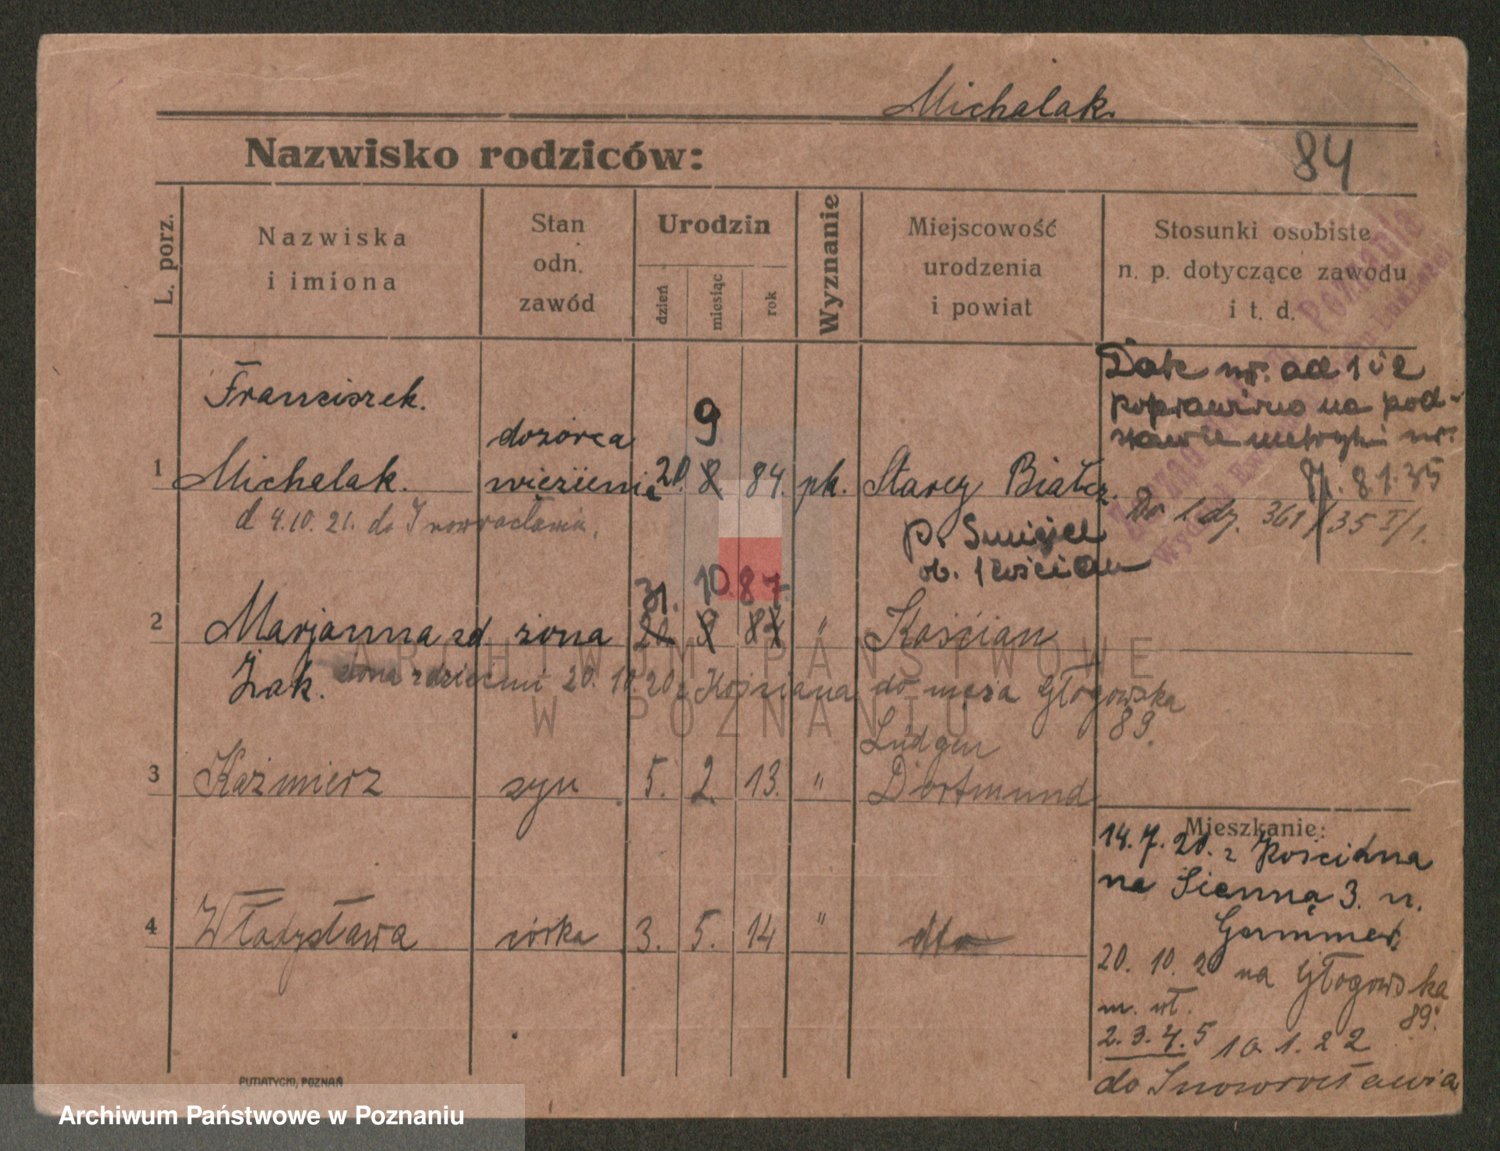 Michalak.
Nazwisko rodziców:
84
L. porz.
Nazwiska
i imiona
Stan
odn.
zawód
Urodzin
dzień
miesiąc
rok
Wyznanie
Miejscowość
urodzenia
i powiat
Stosunki osobiste
n. p. dotyczące zawodu
i t. d.
Franciszek.
1 Michalak. dozorca
więzienia 20. 8. 9 84. rk. Starey Białcz.
d 4.10.21. do Inowrocławia.
p. Śmigiel
ob. Kościan
Dat. ur. od 1 i 2
poprawiono na pod-
stawie metryki ur.
8.1.35
Do l. dz. 361/35 I/1.
31. 10 87.
2 Marjanna zd żona 20 8 84 " Kościan
Żak. żona z dziećmi 20. 10. 20 z Kościana do męża Głogowska
89.
Lüdgen
3 Kaźmierz syn 5. 2. 13. " Dortmund
4 Władysława córka 3. 5. 14 " dto
Mieszkanie:
14. 7. 20. z Kościana
na Sienną 3. u.
20. 10. 20 na Głogowska
89.
m. wł.
2. 3. 4. 5 10. 1. 22
do Inowrocławia
PUTIATYCKI, POZNAŃ
ARCHIWUM PAŃSTWOWE
W POZNANIU
Archiwum Państwowe w Poznaniu